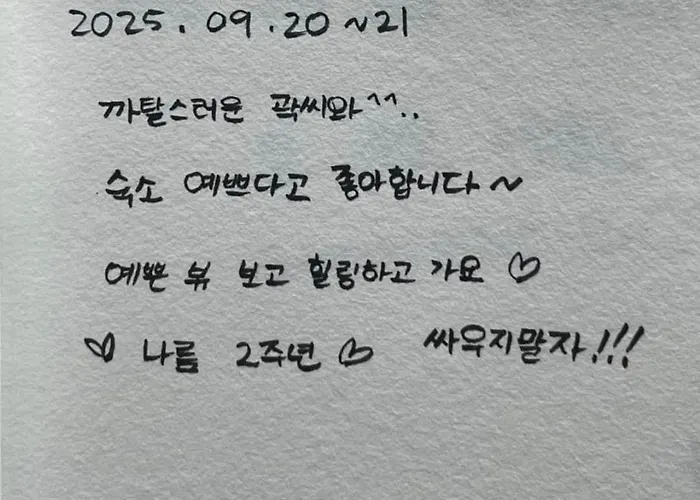 2025. 09. 20 ~21
까탈스러운 곽씨와 ^^..
숙소 예쁘다고 좋아합니다 ~
예쁜 뷰 보고 힐링하고 가요 ♡
♡ 나름 2주년 ♡ 싸우지말자!!!